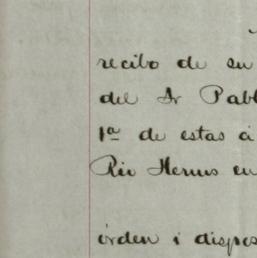 recibo de su
del Sr Pabl
1ª de estas á
Rio Herms en
órden i dispos